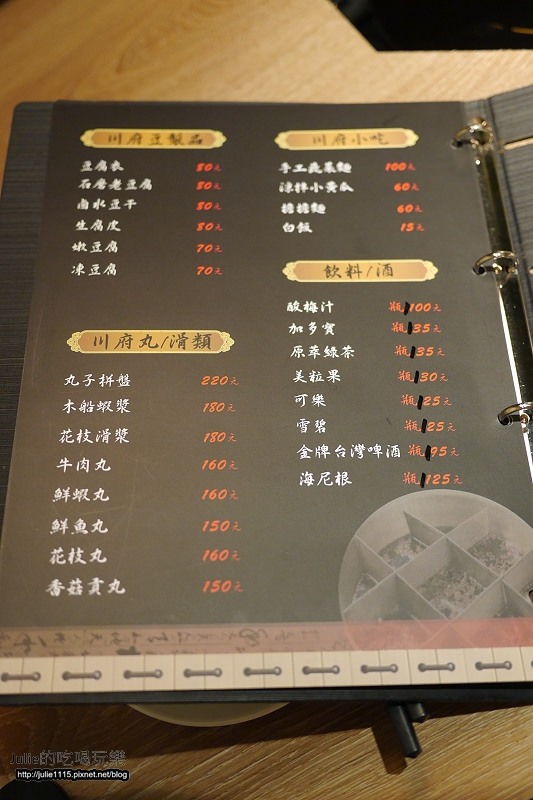 川府豆製品
豆腐衣 80元
石磨老豆腐 80元
鹵水豆干 80元
生腐皮 80元
嫩豆腐 70元
凍豆腐 70元
川府丸/滑類
丸子拼盤 220元
木船蝦漿 180元
花枝滑漿 180元
牛肉丸 160元
鮮蝦丸 160元
鮮魚丸 150元
花枝丸 160元
香菇貢丸 150元
川府小吃
手工蔬菜麵 100元
涼拌小黃瓜 60元
擔擔麵 60元
白飯 15元
飲料/酒
酸梅汁 瓶/100元
加多寶 瓶/35元
原萃綠茶 瓶/35元
美粒果 瓶/30元
可樂 瓶/25元
雪碧 瓶/25元
金牌台灣啤酒 瓶/95元
海尼根 瓶/125元
Julie的吃喝玩樂
http://julie1115.pixnet.net/blog